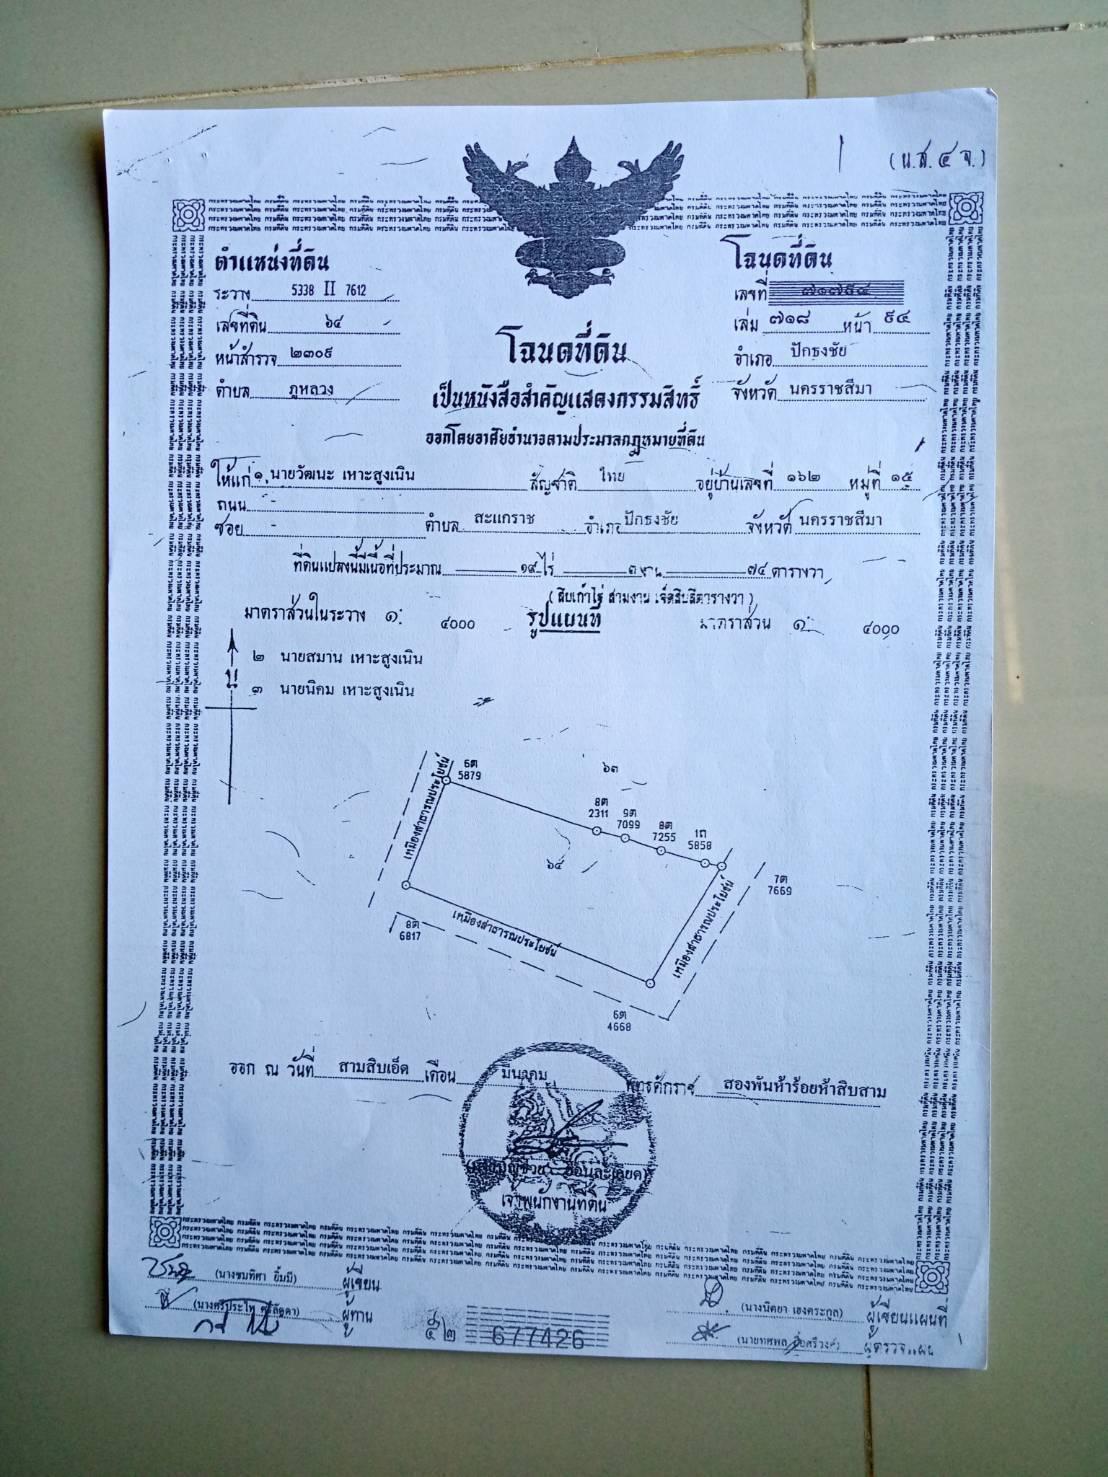 (น.ส.๔ จ.)
ตำแหน่งที่ดิน
ระวาง 5338 II 7612
เลขที่ดิน ๖๔
หน้าสำรวจ ๒๓๐๙
ตำบล ภูหลวง
โฉนดที่ดิน
เลขที่ ๗๑๗๙๔
เล่ม ๗๑๘ หน้า ๙๔
อำเภอ ปักธงชัย
จังหวัด นครราชสีมา
โฉนดที่ดิน
เป็นหนังสือสำคัญแสดงกรรมสิทธิ์
ออกโดยอาศัยอำนาจตามประมวลกฎหมายที่ดิน
ให้แก่ ๑. นายวัฒนะ เหาะสูงเนิน สัญชาติ ไทย อยู่บ้านเลขที่ ๑๖๒ หมู่ที่ ๑๕
ถนน -
ซอย - ตำบล สะแกราช อำเภอ ปักธงชัย จังหวัด นครราชสีมา
ที่ดินแปลงนี้มีเนื้อที่ประมาณ ๑๙ ไร่ ๓ งาน ๗๔ ตารางวา
(สิบเก้าไร่ สามงาน เจ็ดสิบสี่ตารางวา)
มาตราส่วนในระวาง ๑: ๔๐๐๐ รูปแผนที่ มาตราส่วน ๑: ๔๐๐๐
๒ นายสมาน เหาะสูงเนิน
น
๓ นายนิคม เหาะสูงเนิน
6ต
5879
๖๓
8ต
2311
9ต
7099
8ต
7255
1ถ
5858
๖๔
7ต
7669
เหมืองสาธารณประโยชน์
เหมืองสาธารณประโยชน์
เหมืองสาธารณประโยชน์
8ต
6817
6ต
4668
ออก ณ วันที่ สามสิบเอ็ด เดือน มีนาคม พุทธศักราช สองพันห้าร้อยห้าสิบสาม
เจ้าพนักงานที่ดิน
(นางชมทิศา ยิ้มมี) ผู้เขียน
ผู้ทาน
(นางนิตยา เฮงตระกูล) ผู้เขียนแผนที่
ผู้ตรวจแผน
๕๒ 677426